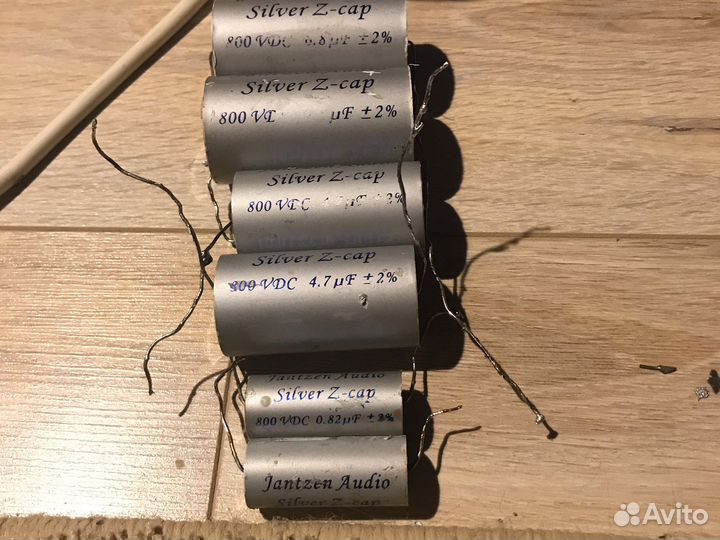 Silver Z-cap
800 VDC 6.8µF ±2%
Silver Z-cap
800 µF ±2%
Silver Z-cap
800 VDC ±2%
Silver Z-cap
800 VDC 4.7µF ±2%
Jantzen Audio
Silver Z-cap
800 VDC 0.82µF ±2%
Jantzen Audio
Silver Z-cap
Avito